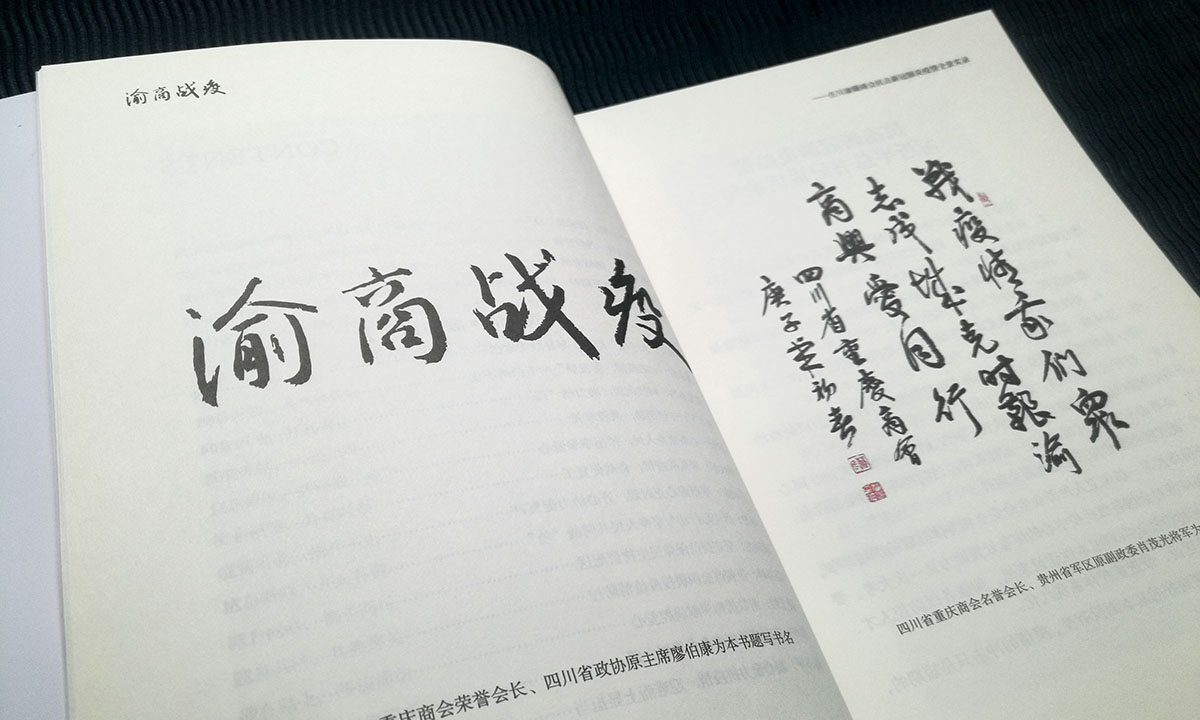 渝商战疫
渝商战疫
重庆商会荣誉会长、四川省政协原主席廖伯康为本书题写书名
戰疫情我们眾
志成城克时艱渝
商興愛同行
四川省重慶商會
庚子
四川省重庆商会名誉会长、贵州省军区原副政委肖茂光将军为